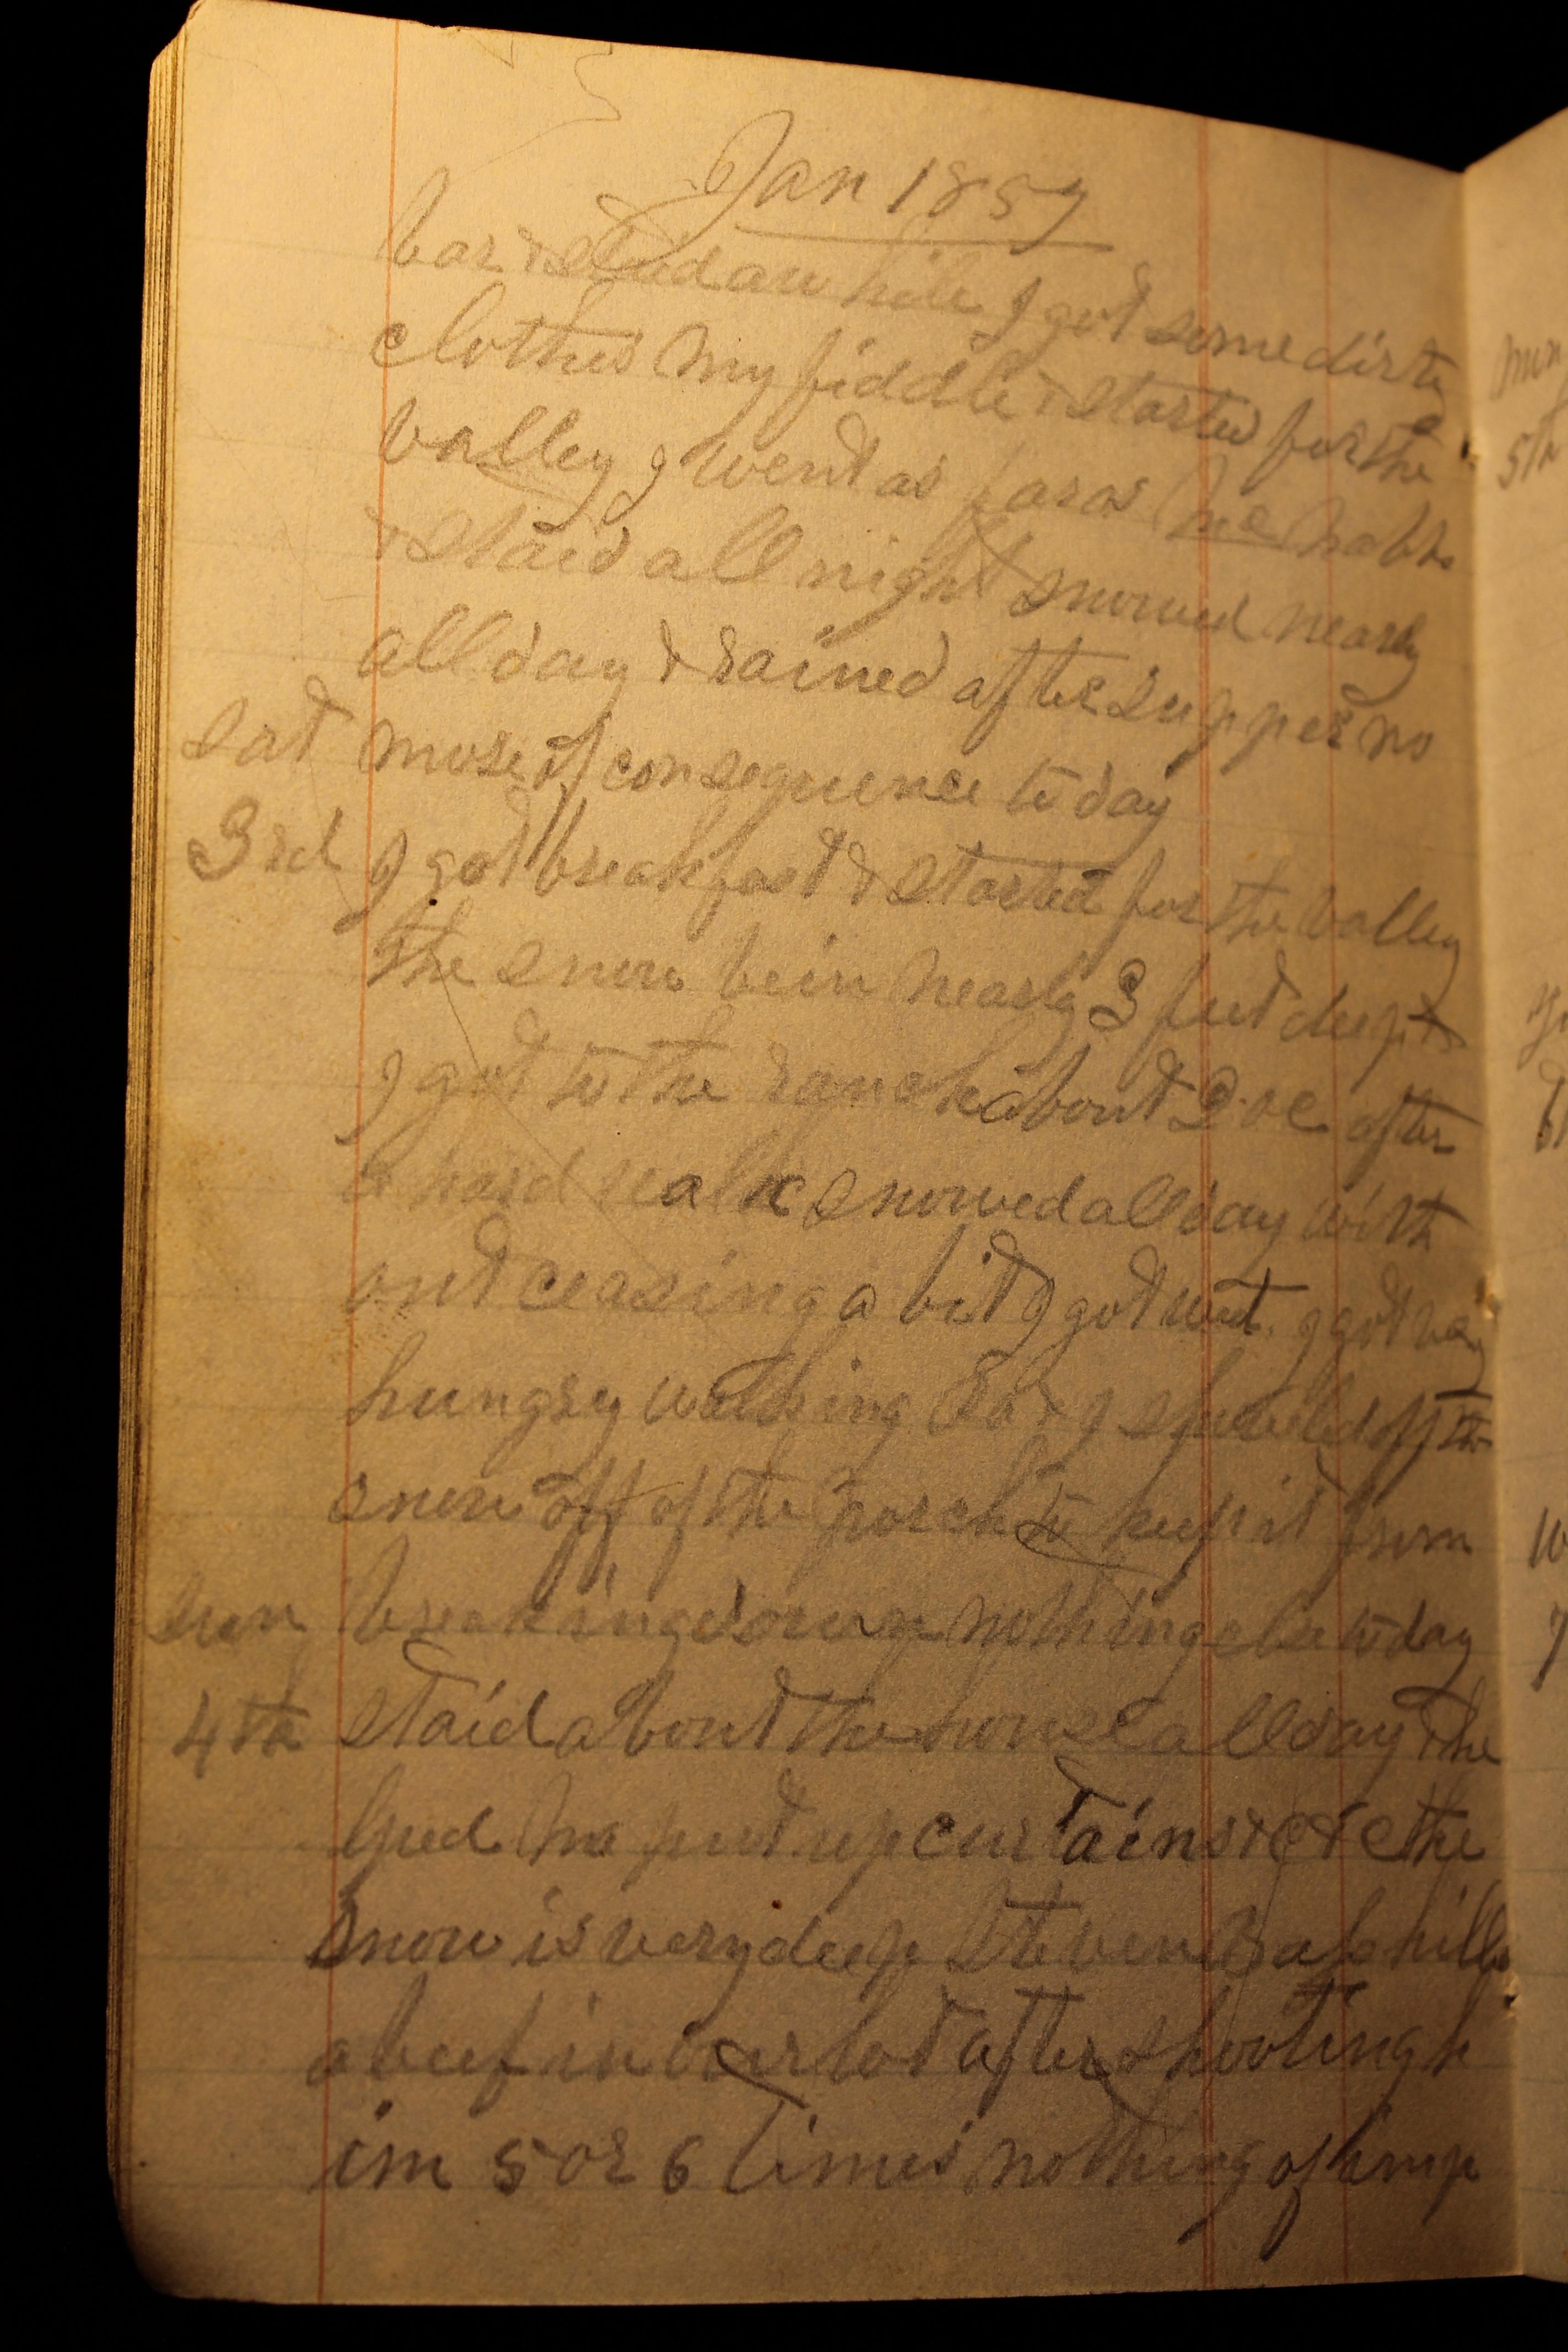 Jan 1857
bar & staid aw hile I got some dirty
clothes my fiddle & started for the
valley I went as far as Mc
& staid all night snowed nearly
all day & rained after supper no
Sat more of consequence to day
3rd I got breakfast & started for the valley
the snow bein nearly 3 feet deep &
I got to the ranch about 2 oc after
a hard walk snowed all day with
out ceasing a bit I got wet. I got very
hungry walking I shoveled off the
snow off of the porch to keep it from
Sun breaking down nothing else to day
4th staid about the house all day & he
lped Ma put up curtains & c & c the
Snow is very deep Steven kill
a beef in our lot after shooting h
im 5 or 6 times nothing of imp
5th